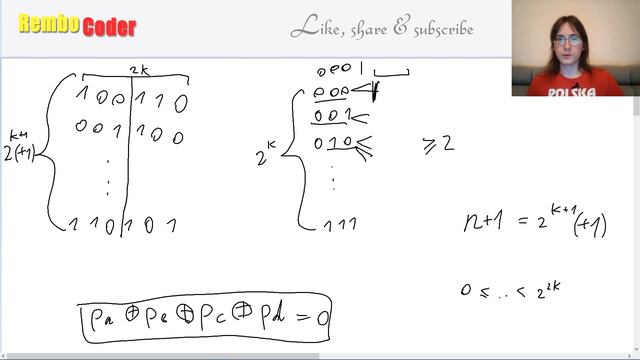 Rembo Coder
Like, share & subscribe
POLSKA
2k
1 0 0 1 1 0
0 0 1 1 0 0
⋮
1 1 0 1 0 1
2^{k+1}(+1)
0 0 0 1
0 0 0
0 0 1
0 1 0
⋮
1 1 1
2^k
≥ 2
n+1 = 2^{k+1}(+1)
0 ≤ .. < 2^{2k}
Pa ⊕ Pb ⊕ Pc ⊕ Pd = 0